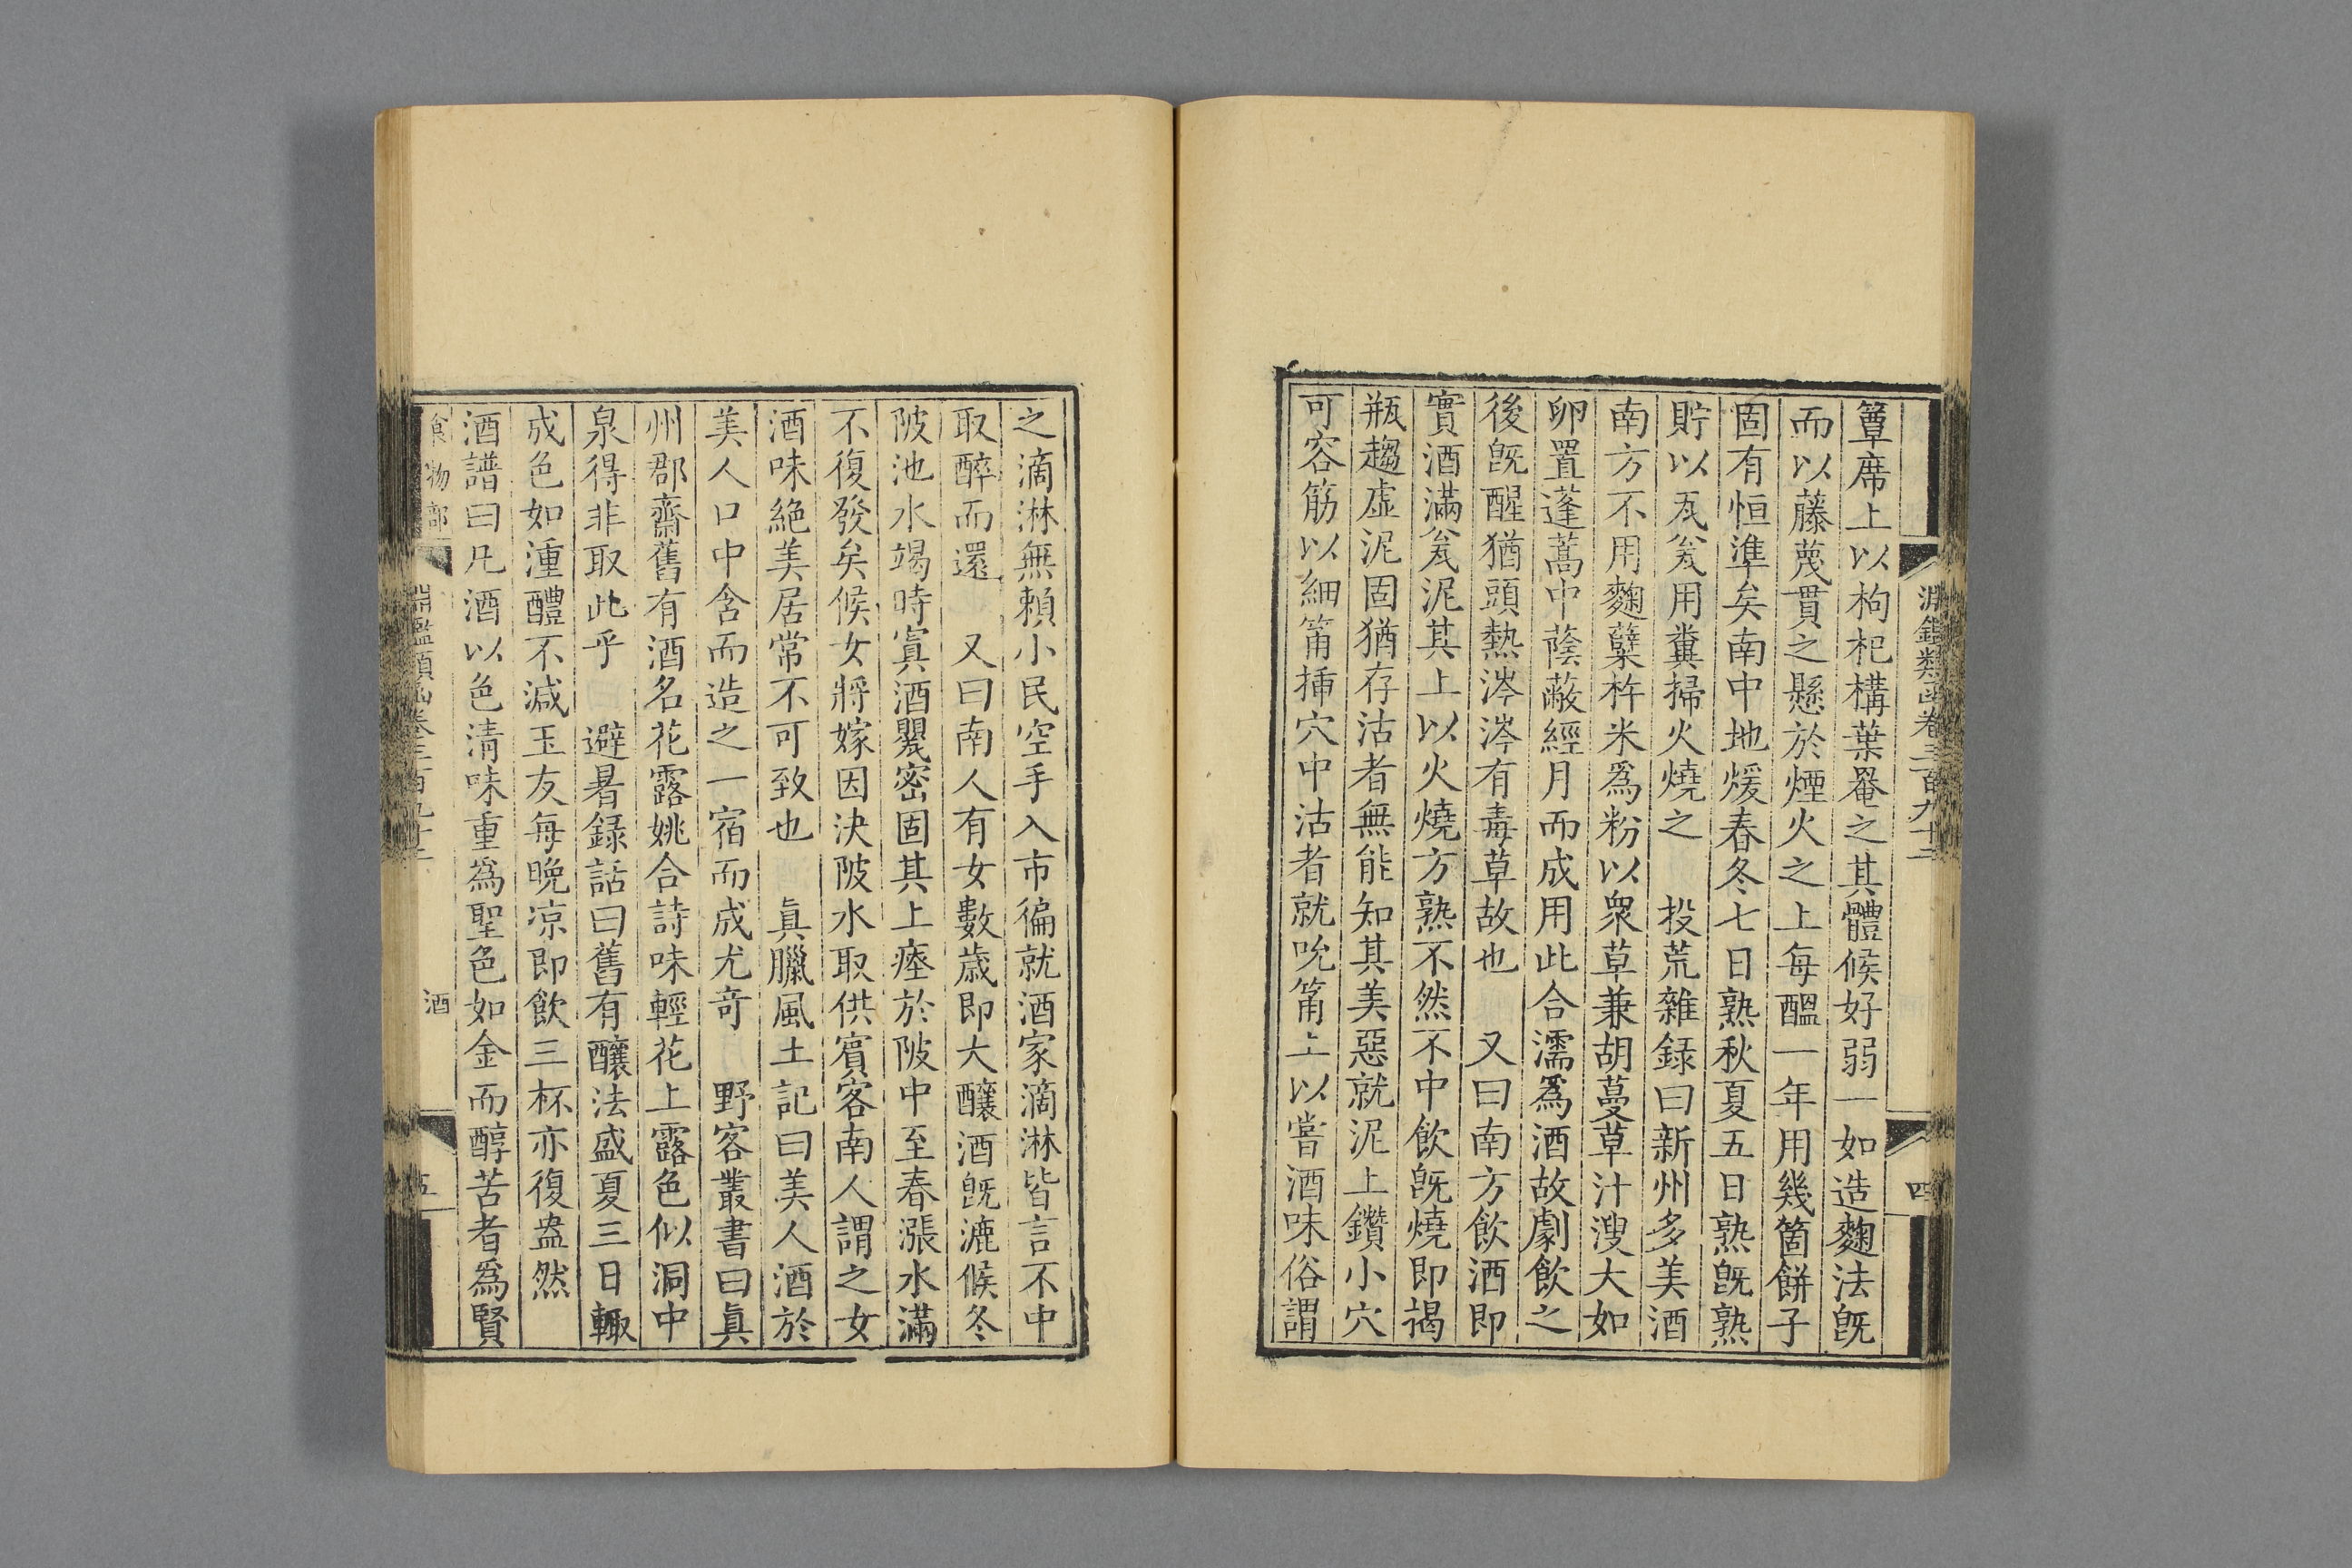 淵鑑類函卷三百九十二
四
簟席上以枸杞構葉罨之其體候好弱一如造麴法旣
而以藤蔑貫之懸於煙火之上每醞一年用幾箇餅子
固有恒準矣南中地煖春冬七日熟秋夏五日熟旣熟
貯以瓦瓮用糞掃火燒之　投荒雜録曰新州多美酒
南方不用麴糵杵米爲粉以衆草兼胡蔓草汁溲大如
卵置蓬蒿中蔭蔽經月而成用此合濡爲酒故劇飲之
後旣醒猶頭熱涔涔有毒草故也　又曰南方飲酒即
實酒滿瓮泥其上以火燒方熟不然不中飲旣燒即揭
瓶趨虚泥固猶存沽者無能知其美惡就泥上鑽小穴
可容筋以細筩揷穴中沽者就吮筩上以嘗酒味俗謂
之滴淋無賴小民空手入市徧就酒家滴淋皆言不中
取醉而還　又曰南人有女數歳即大釀酒旣漉候冬
陂池水竭時寘酒甖密固其上瘞於陂中至春漲水滿
不復發矣候女將嫁因決陂水取供賓客南人謂之女
酒味絶美居常不可致也　眞臘風土記曰美人酒於
美人口中含而造之一宿而成尤奇　野客叢書曰眞
州郡齋舊有酒名花露姚合詩味輕花上露色似洞中
泉得非取此乎　避暑録話曰舊有釀法盛夏三日輙
成色如湩醴不減玉友每晩凉即飲三杯亦復盎然
酒譜曰凡酒以色清味重爲聖色如金而醇苦者爲賢
食物部
淵鑑類函卷三百九十二
酒
五